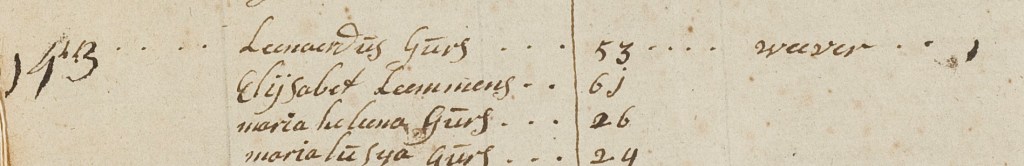 143 . . . . Leenardus Gurs . . . 53 . . . . weever . . 1
Elijsabet Leemmens . . 61
maria heleena Gurs . . . 26
maria lusya Gurs . . . 24